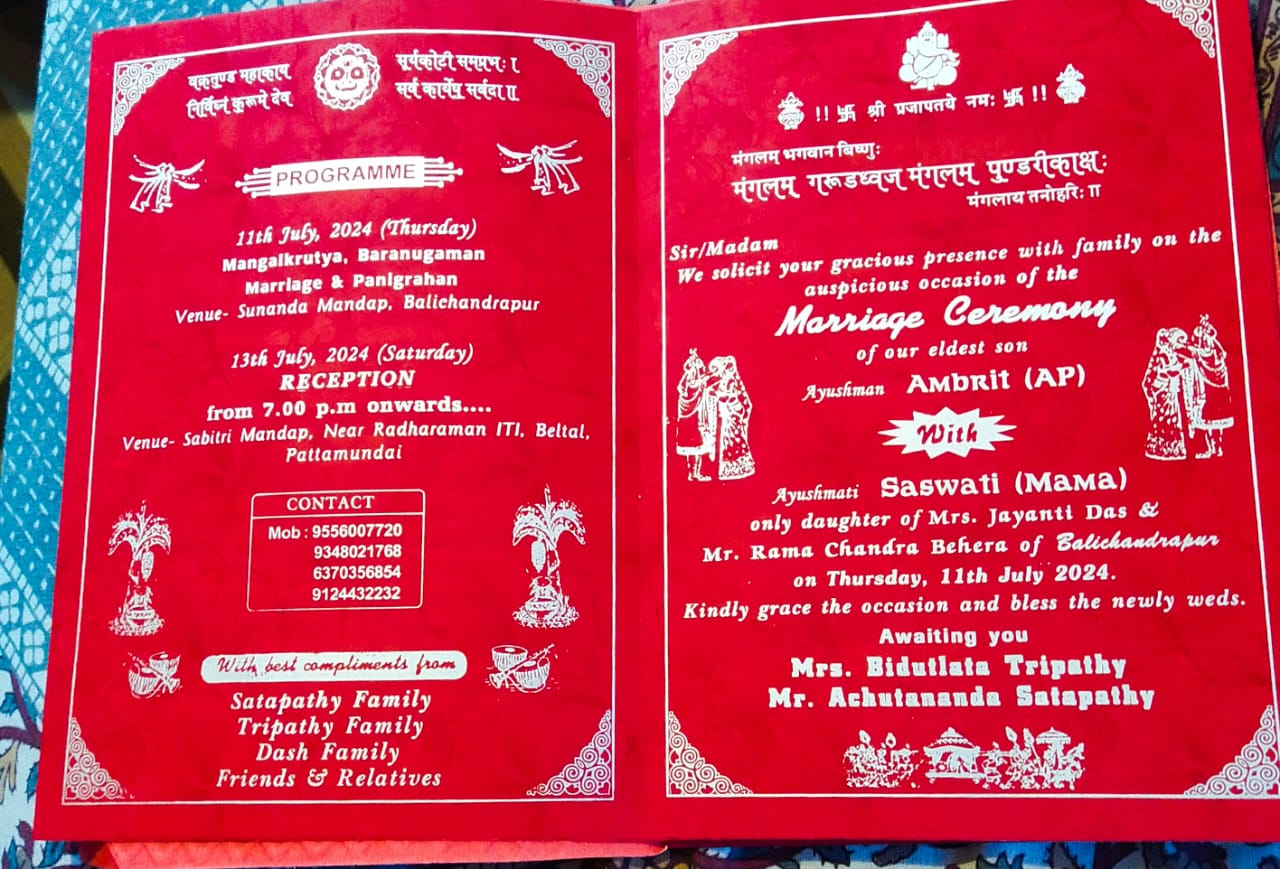 वक्रतुण्ड महाकाय सूर्यकोटी समप्रभः।
निर्विघ्नं कुरूमे देव सर्व कार्येषु सर्वदा॥
PROGRAMME
11th July, 2024 (Thursday)
Mangalkrutya, Baranugaman
Marriage & Panigrahan
Venue- Sunanda Mandap, Balichandrapur
13th July, 2024 (Saturday)
RECEPTION
from 7.00 p.m onwards....
Venue- Sabitri Mandap, Near Radharaman ITI, Beltal,
Pattamundai
CONTACT
Mob : 9556007720
9348021768
6370356854
9124432232
With best compliments from
Satapathy Family
Tripathy Family
Dash Family
Friends & Relatives
!! 卐 श्री प्रजापतये नमः 卐 !!
मंगलम् भगवान बिष्णुः
मंगलम् गरूडध्वज मंगलम् पुण्डरीकाक्षः
मंगलाय तनोहरिः॥
Sir/Madam
We solicit your gracious presence with family on the
auspicious occasion of the
Marriage Ceremony
of our eldest son
Ayushman Ambrit (AP)
With
Ayushmati Saswati (Mama)
only daughter of Mrs. Jayanti Das &
Mr. Rama Chandra Behera of Balichandrapur
on Thursday, 11th July 2024.
Kindly grace the occasion and bless the newly weds.
Awaiting you
Mrs. Bidutlata Tripathy
Mr. Achutananda Satapathy